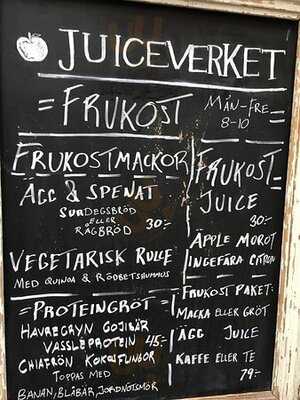 JUICEVERKET
= FRUKOST
MÅN-FRE
8-10
FRUKOSTMACKOR
ÄGG & SPENAT
SURDEGSBRÖD
ELLER
RÅGBRÖD 30:-
VEGETARISK RULLE
MED QUINOA & RÖDBETSHUMMUS
= PROTEINGRÖT =
HAVREGRYN GOJIBÄR
VASSLEPROTEIN 45:-
CHIAFRÖN KOKOSFLINGOR
TOPPAS MED
BANAN, BLÅBÄR, JORDNÖTSMÖR
FRUKOST-
JUICE
30:-
ÄPPLE MOROT
INGEFÄRA CITRON
FRUKOST PAKET:
MACKA ELLER GRÖT
ÄGG JUICE
KAFFE ELLER TE
79:-